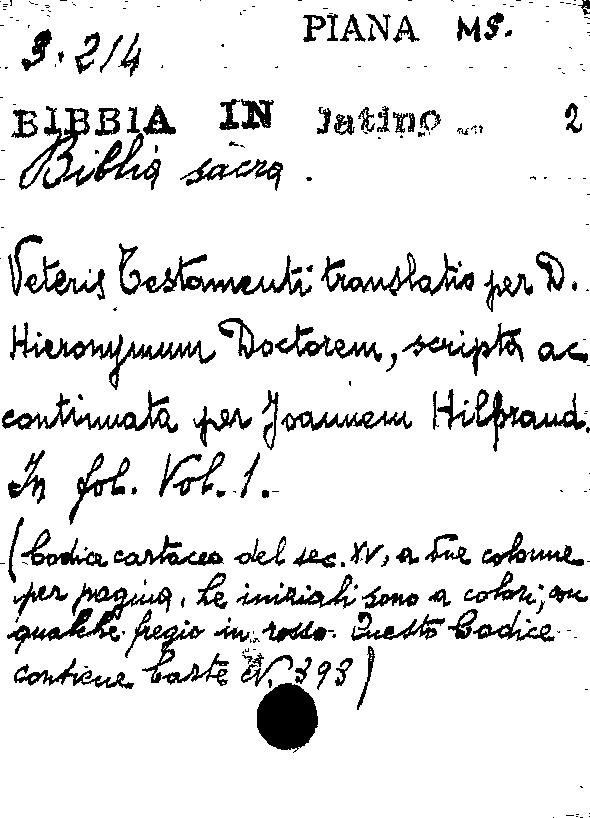 PIANA MS.
3.214
BIBBIA IN latino 2
Biblia sacra.
Veteris Testamenti translatio per D.
Hieronymum Doctorem, scripta ac
continuata per Joannem Hilprand.
In fol. Vol. 1.
(Codice cartaceo del sec. XV, a due colonne
per pagina. Le iniziali sono a colori; con
qualche fregio in rosso. Questo Codice
contiene Carte N. 393)